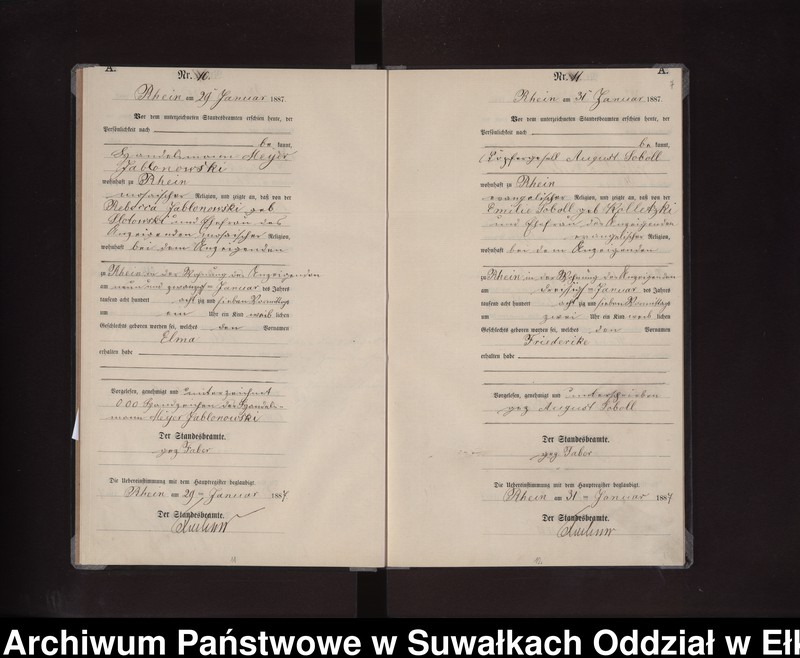 A.
Nr. 10.
Rhein am 29 Januar 1887.
Vor dem unterzeichneten Standesbeamten erschien heute, der
Persönlichkeit nach
be kannt,
Handelsmann Meyer
Jablonowski
wohnhaft zu Rhein
mosaischer Religion, und zeigte an, daß von der
Rebecca Jablonowski geb
Slotowski und Ehefrau des
Anzeigenden mosaischer Religion,
wohnhaft bei dem Anzeigenden
zu Rhein in der Wohnung des Anzeigenden
am neun und zwanzigsten Januar des Jahres
tausend acht hundert acht zig und sieben Vormittags
um ein Uhr ein Kind weib lichen
Geschlechts geboren worden sei, welches den Vornamen
Elma
erhalten habe
Vorgelesen, genehmigt und unterzeichnet
000 Handzeichen des Handels-
mann Meyer Jablonowski
Der Standesbeamte.
gez Faber
Die Uebereinstimmung mit dem Hauptregister beglaubigt.
Rhein am 29 Januar 1887
Der Standesbeamte.
A.
Nr. 11.
Rhein am 31 Januar 1887.
Vor dem unterzeichneten Standesbeamten erschien heute, der
Persönlichkeit nach
be kannt,
Töpfergesell August Soboll
wohnhaft zu Rhein
evangelischer Religion, und zeigte an, daß von der
Emilie Soboll geb Kolletzki
und Ehefrau des Anzeigenden
evangelischer Religion,
wohnhaft bei dem Anzeigenden
zu Rhein in der Wohnung des Anzeigenden
am Januar des Jahres
tausend acht hundert acht zig und sieben Vormittags
um zwei Uhr ein Kind weib lichen
Geschlechts geboren worden sei, welches den Vornamen
Friederike
erhalten habe
Vorgelesen, genehmigt und unterschrieben
gez August Soboll
Der Standesbeamte.
gez Faber
Die Uebereinstimmung mit dem Hauptregister beglaubigt.
Rhein am 31 Januar 1887
Der Standesbeamte.
Archiwum Państwowe w Suwałkach Oddział w Ełk